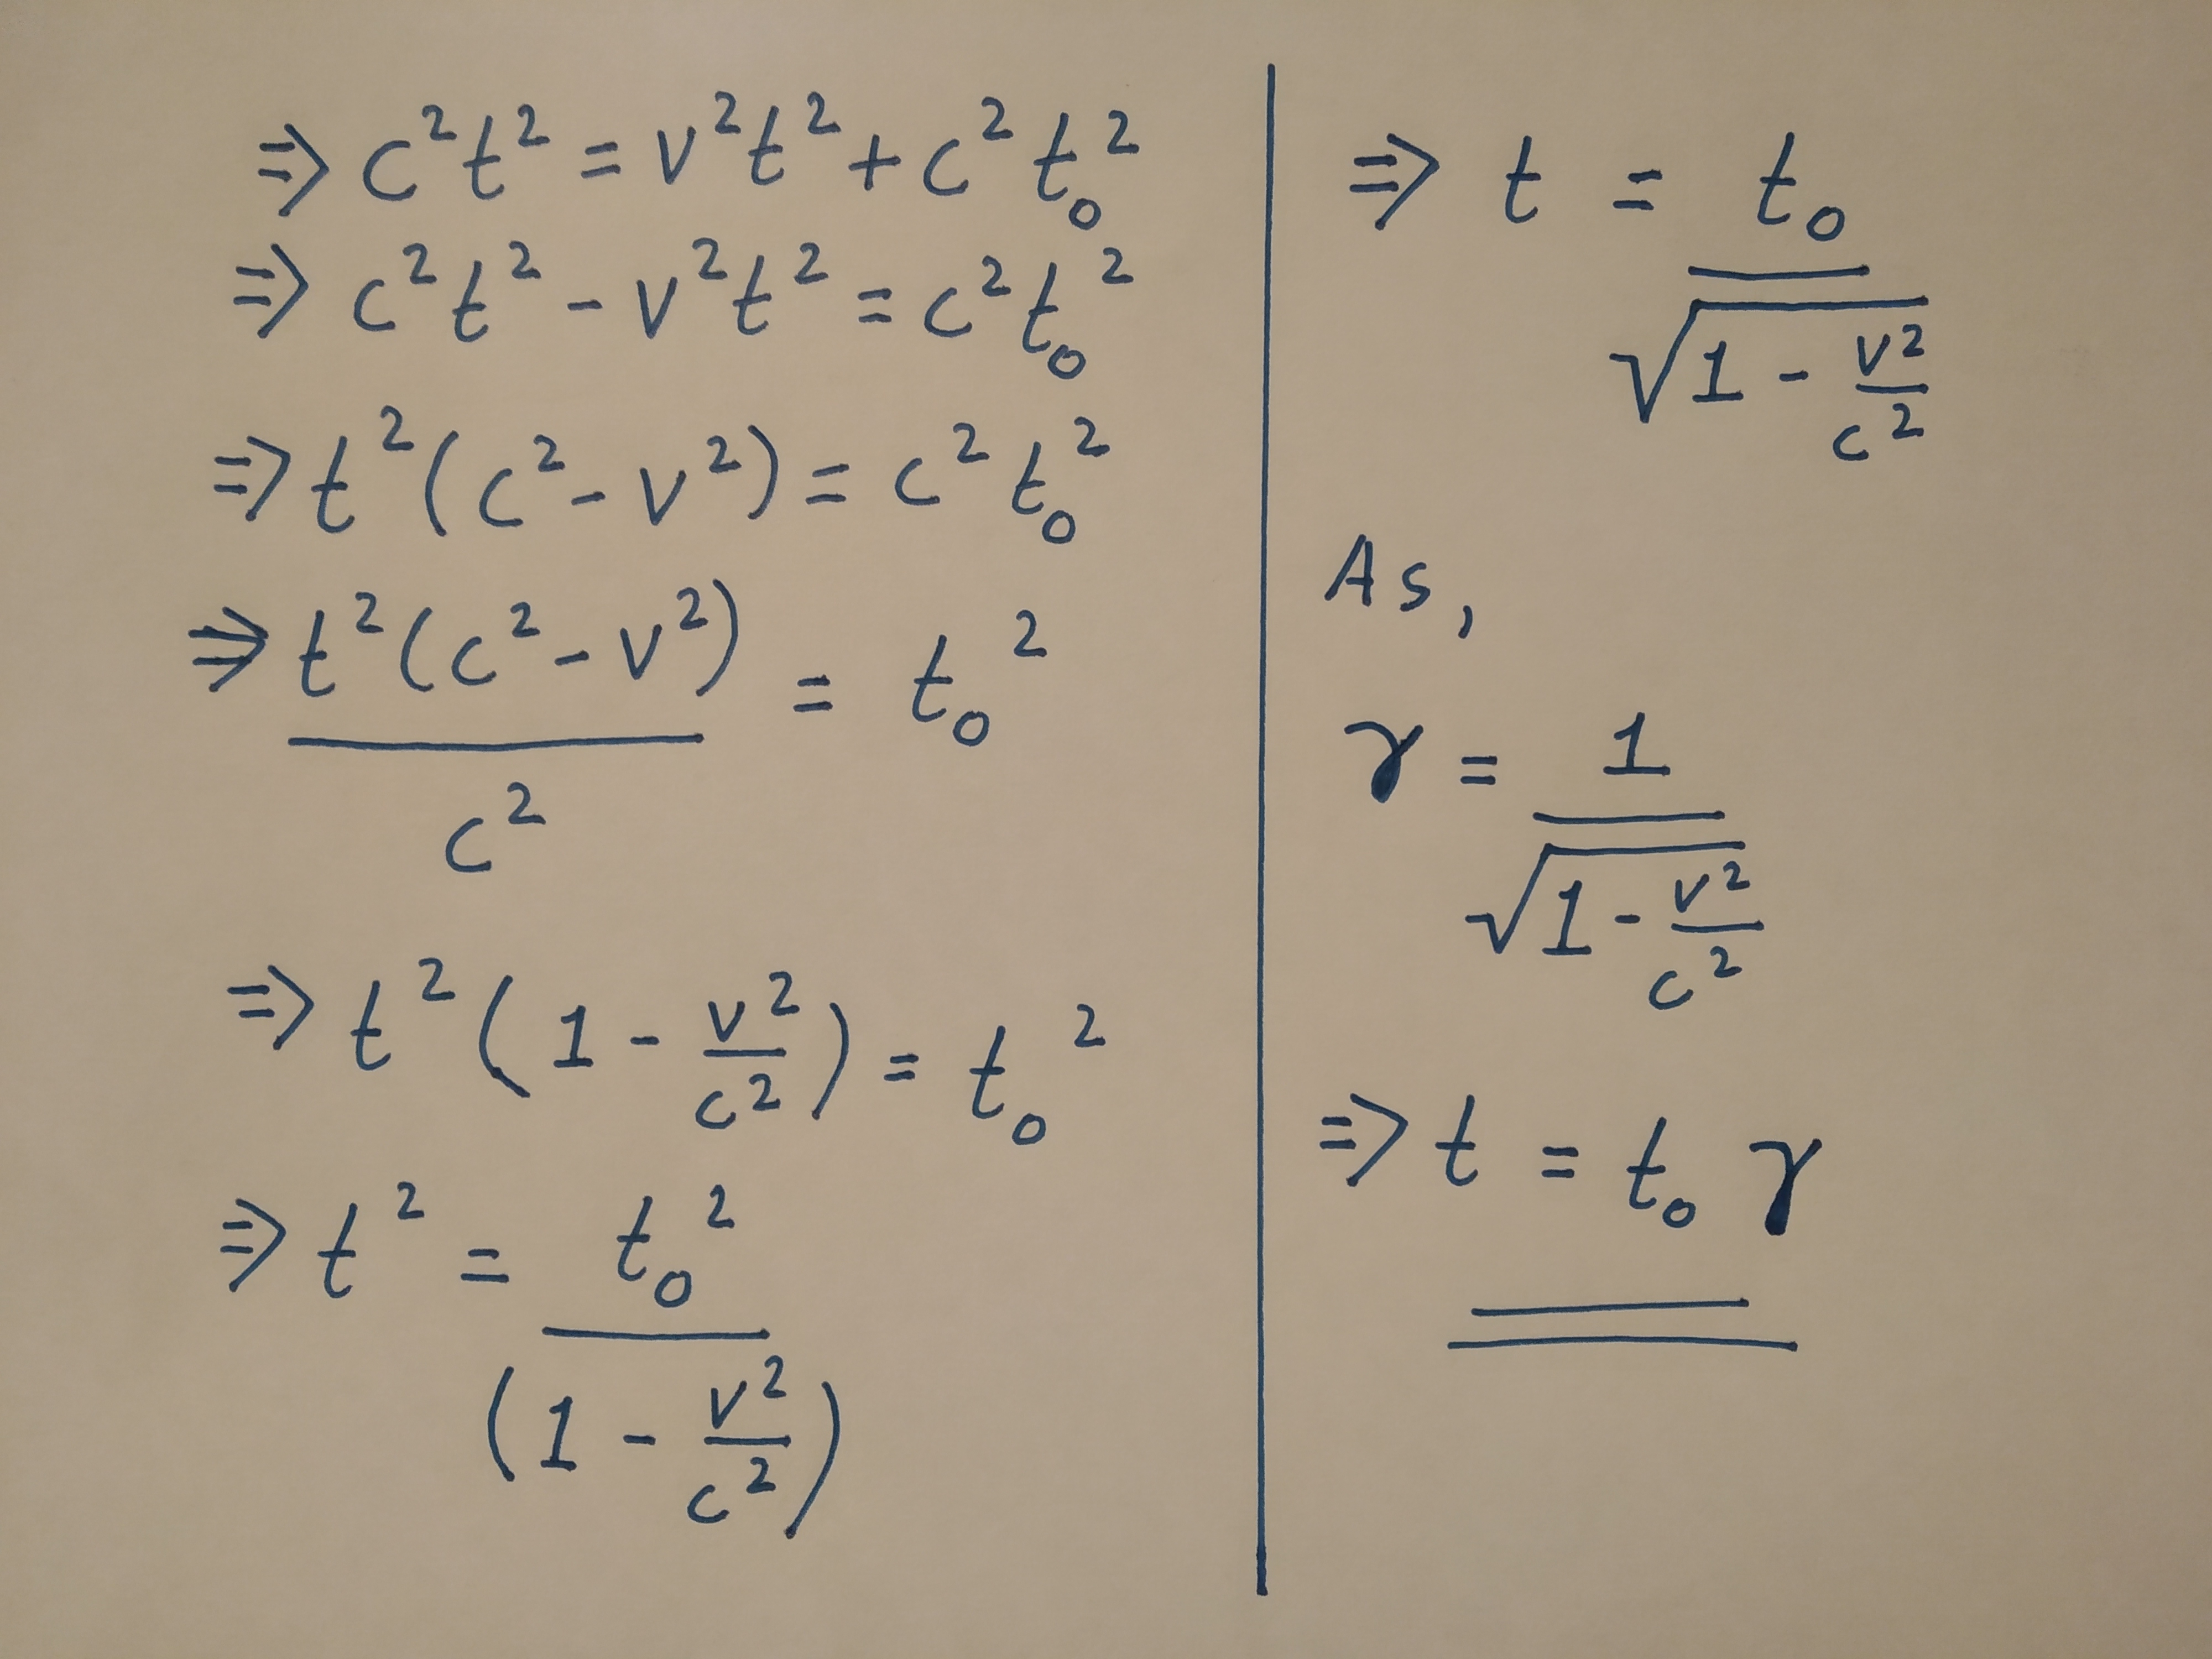 ⇒ c²t² = v²t² + c²t₀²
⇒ c²t² - v²t² = c²t₀²
⇒ t²(c² - v²) = c²t₀²
⇒ t²(c² - v²) / c² = t₀²
⇒ t²(1 - v²/c²) = t₀²
⇒ t² = t₀² / (1 - v²/c²)
⇒ t = t₀ / √(1 - v²/c²)
As,
γ = 1 / √(1 - v²/c²)
⇒ t = t₀ γ